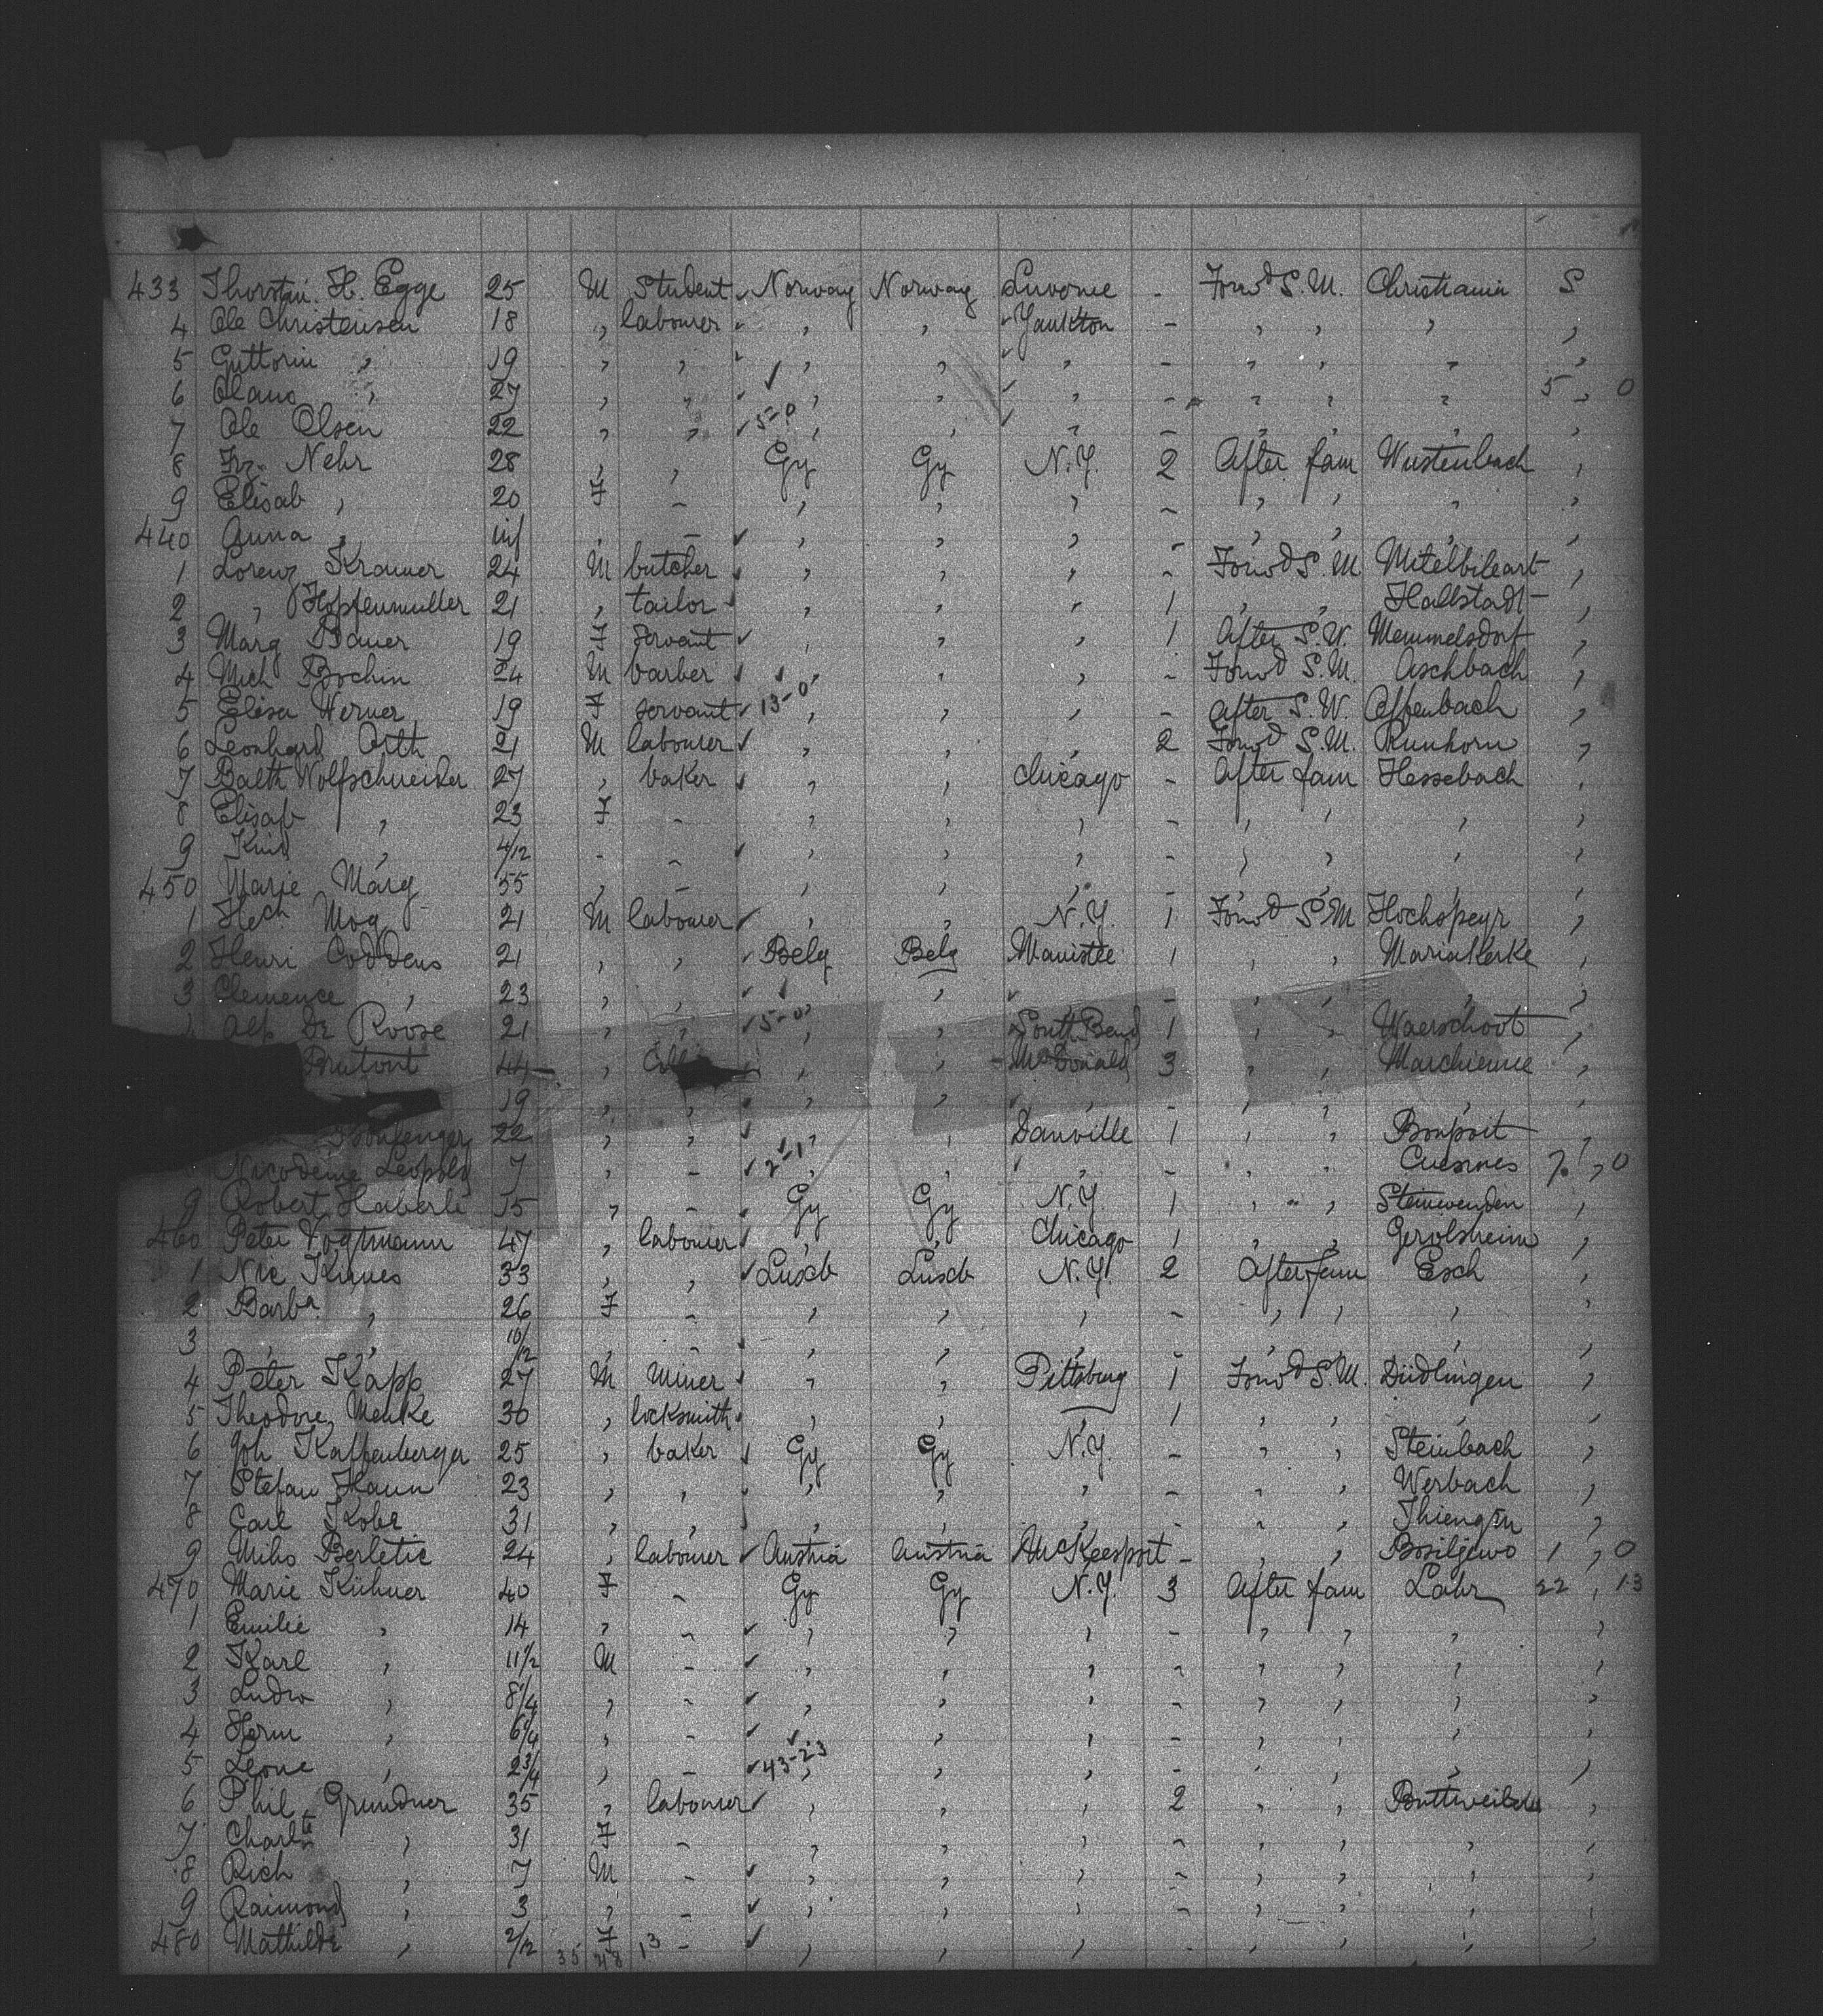 433 Thorstein H. Egge 25 M Student Norway Norway Luvonie - Forwd S. M. Christiania S
4 Ole Christensen 18 , labourer , , Yankton - , , , ,
5 Guttorm , 19 , , , , , - , , , ,
6 Olaus , 27 , , , , , - , , , 5 , 0
7 Ole Olsen 22 , , 5-0 , , , - , , , ,
8 Frz. Nehr 28 , , Gy Gy N.Y. 2 After fam Wustenbach ,
9 Elisab , 20 F - , , , - , , , ,
440 Anna , inf , - , , , - , , , ,
1 Lorenz Kramer 24 M butcher , , , - Forwd S. M Mitelbileart ,
2 , Hopfenmuller 21 , tailor , , , 1 , , Hallstadt ,
3 Marg Bauer 19 F servant , , , 1 After S. W. Memmelsdorf ,
4 Mich Bochin 24 M barber , , , - Forwd S. M. Aschbach ,
5 Elisa Werner 19 F servant 13-0 , , , - After S. W. Affenbach ,
6 Leonhard Orth 21 M labourer , , , 2 Forwd S. M. Runhorn ,
7 Balth Wolfschneider 27 , baker , , Chicago - After fam Hessebach ,
8 Elisab , 23 F - , , , - , , , ,
9 Kind , 4/12 - - , , , - , , , ,
450 Marie Marg 55 , - , , , - , , , ,
1 Hch Mog 21 M labourer , , N.Y. 1 Forwd S. M Hochspeyr ,
2 Henri Coddens 21 , , Belg Belg Manistee 1 , , Mariakerke ,
3 Clemence , 23 , , , , , - , , , ,
Alp De Roose 21 , , 5-0 , , South Bend 1 , , Waerschoot ,
Prutout 44 , , , McDonald 3 , , Marchienne ,
19 , , , , , - , , , ,
22 , , , , Danville 1 , , Bonport ,
Nicodeme Leopold 7 , - 2-1 , , , - , , Cuesmes 7 , 0
9 Robert Haberle 15 , - Gy Gy N.Y. 1 , , Steinwenden ,
460 Peter Vogtmann 47 , labourer , , Chicago 1 , , Gerolsheim ,
1 Nic Kunes 33 , , Luxb Luxb N.Y. 2 After fam Esch ,
2 Barba , 26 F - , , , - , , , ,
3 , , 10/12 , - , , , - , , , ,
4 Peter Kapp 27 M Miner , , Pittsburg 1 Forwd S. M. Düdlingen ,
5 Theodore Menke 30 , locksmith , , , 1 , , , ,
6 Joh Kaffenberger 25 , baker Gy Gy N.Y. - , , Steinbach ,
7 Stefan Haun 23 , , , , , - , , Werbach ,
8 Carl Kobe 31 , , , , , - , , Thiengen ,
9 Miho Berletic 24 , labourer Austria Austria McKeesport - , , Bosiljewo 1 , 0
470 Marie Kühner 40 F - Gy Gy N.Y. 3 After fam Lahr 22 , 13
1 Emilie , 14 , - , , , - , , , ,
2 Karl , 11 1/2 M - , , , - , , , ,
3 Ludw , 8 1/4 , - , , , - , , , ,
4 Herm , 6 1/4 , - , , , - , , , ,
5 Leone , 2 3/4 , - 43-23 , , , - , , , ,
6 Phil Grundner 35 , labourer , , , 2 , , Buttweiler ,
7 Charltte , 31 F - , , , - , , , ,
8 Rich , 7 M - , , , - , , , ,
9 Raimond , 3 , - , , , - , , , ,
480 Mathilde , 2/12 F - , , , - , , , ,
35 48 13